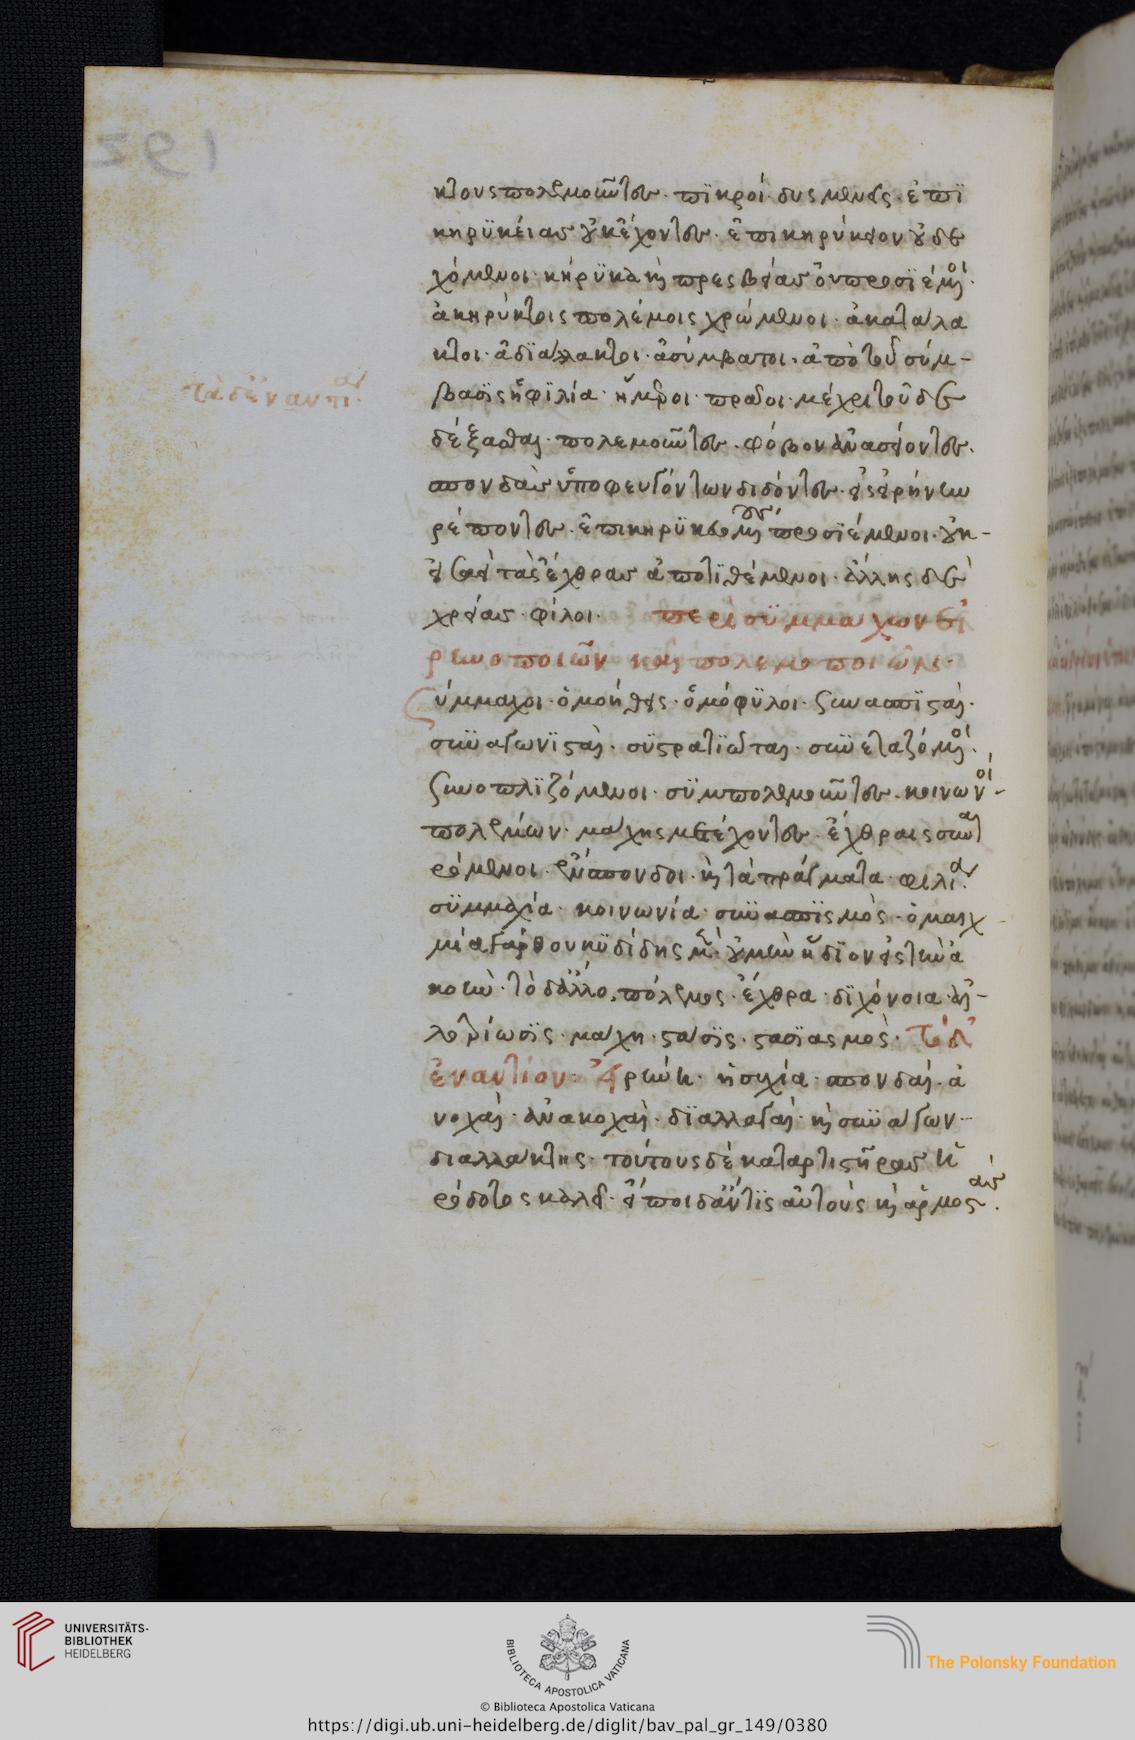 κτους πολεμοῦντες. πικροί. δυσμενεῖς. ἐπι
κηρυκείαν οὐκ ἔχοντες. ἐπικήρυκτον οὐ δε
χόμενοι. κήρυκα καὶ πρεσβείαν οὐ προσιέμενοι.
ἀκηρύκτοις πολέμοις χρώμενοι. ἀκατάλα
κτοι. ἀδιάλλακτοι. ἀσύμβατοι. ἀπὸ τοῦ σύμ-
βασις ἢ φιλία. ἥμεροι. πρᾶοι. μέχρι τοῦ δε
τὰ δὲ ἐναντία.
δέξασθαι. πολεμοῦντες. φόβον ἀνασείοντες.
σπονδὰς ὑποφευγόντων διδόντες. εἰς εἰρήνην
ῥέποντες. ἐπικηρυκευομένους προσιέμενοι. οὐκ-
εἰς ἀεὶ τὰς ἔχθρας ἀποτιθέμενοι. ἄλλης δὲ
χρείας. φίλοι. περὶ συμμάχων εἰ
ρηνοποιῶν καὶ πολεμοποιῶν.
Σύμμαχοι. ὁμοήθεις. ὁμόφυλοι. συνασπισταί.
συναγωνισταί. συστρατιῶται. συνεταζόμενοι.
συνοπλιζόμενοι. συμπολεμοῦντες. κοινωνοί-
πολεμίων. μάχης μετέχοντες. ἔχθραις συναι
ρόμενοι. ἔνσπονδοι. καὶ τὰ πράγματα. φιλία.
συμμαχία. κοινωνία. συνασπισμός. ὁμαιχ
μία γὰρ θουκυδίδης μέν. ἐμοὶ ἥδιον εἰς τὴν ἀ
κοήν. τὸ δ' ἄλλο. πόλεμος. ἔχθρα. διχόνοια. ἀλ-
λοτρίωσις. μάχη. στάσις. στασιασμός. τὸ δ'
ἐναντίον. Εἰρήνη. ἡσυχία. σπονδαί. ἀ
νοχαί. ἀνακοχαί. διαλλαγαί. καὶ συναγων
διαλλακτής. τούτους δὲ καταρτιστῆρας ἡ
ρόδοτος καλεῖ. εἴποι δ' ἄν τις αὐτοὺς καὶ ἁρμοστάς.
195
UNIVERSITÄTS-
BIBLIOTHEK
HEIDELBERG
BIBLIOTECA APOSTOLICA VATICANA
The Polonsky Foundation
© Biblioteca Apostolica Vaticana
https://digi.ub.uni-heidelberg.de/diglit/bav_pal_gr_149/0380